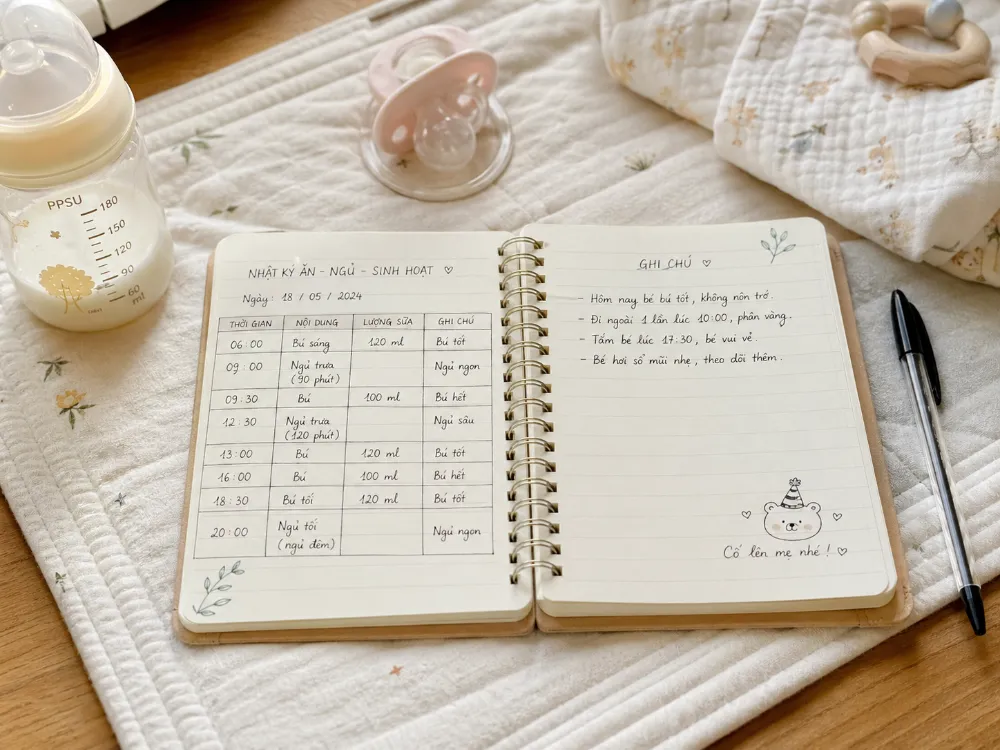 PPSU
180
150
120
90
60
ml
NHẬT KÝ ĂN - NGỦ - SINH HOẠT ♡
Ngày: 18 / 05 / 2024
THỜI GIAN NỘI DUNG LƯỢNG SỮA GHI CHÚ
06:00 Bú sáng 120 ml Bú tốt
09:00 Ngủ trưa (90 phút) Ngủ ngon
09:30 Bú 100 ml Bú hết
12:30 Ngủ trưa (120 phút) Ngủ sâu
13:00 Bú 120 ml Bú tốt
16:00 Bú 100 ml Bú hết
18:30 Bú tối 120 ml Bú tốt
20:00 Ngủ tối (ngủ đêm) Ngủ ngon
GHI CHÚ ♡
- Hôm nay bé bú tốt, không nôn trớ.
- Đi ngoài 1 lần lúc 10:00, phân vàng.
- Tắm bé lúc 17:30, bé vui vẻ.
- Bé hơi sổ mũi nhẹ, theo dõi thêm.
Cố lên mẹ nhé! ♡